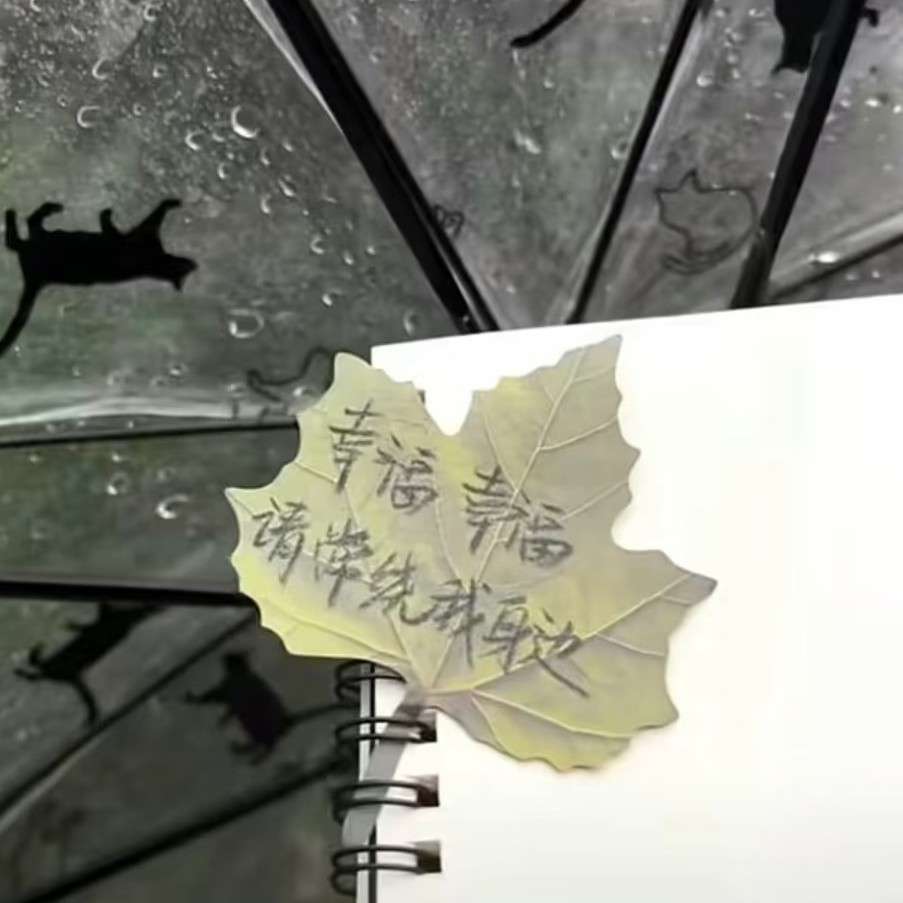 幸福 幸福
请萦绕我身边